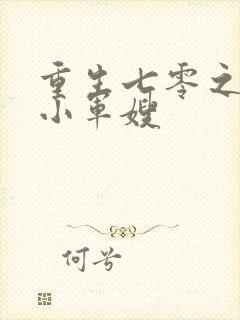 重生七零之
小军嫂
何兮